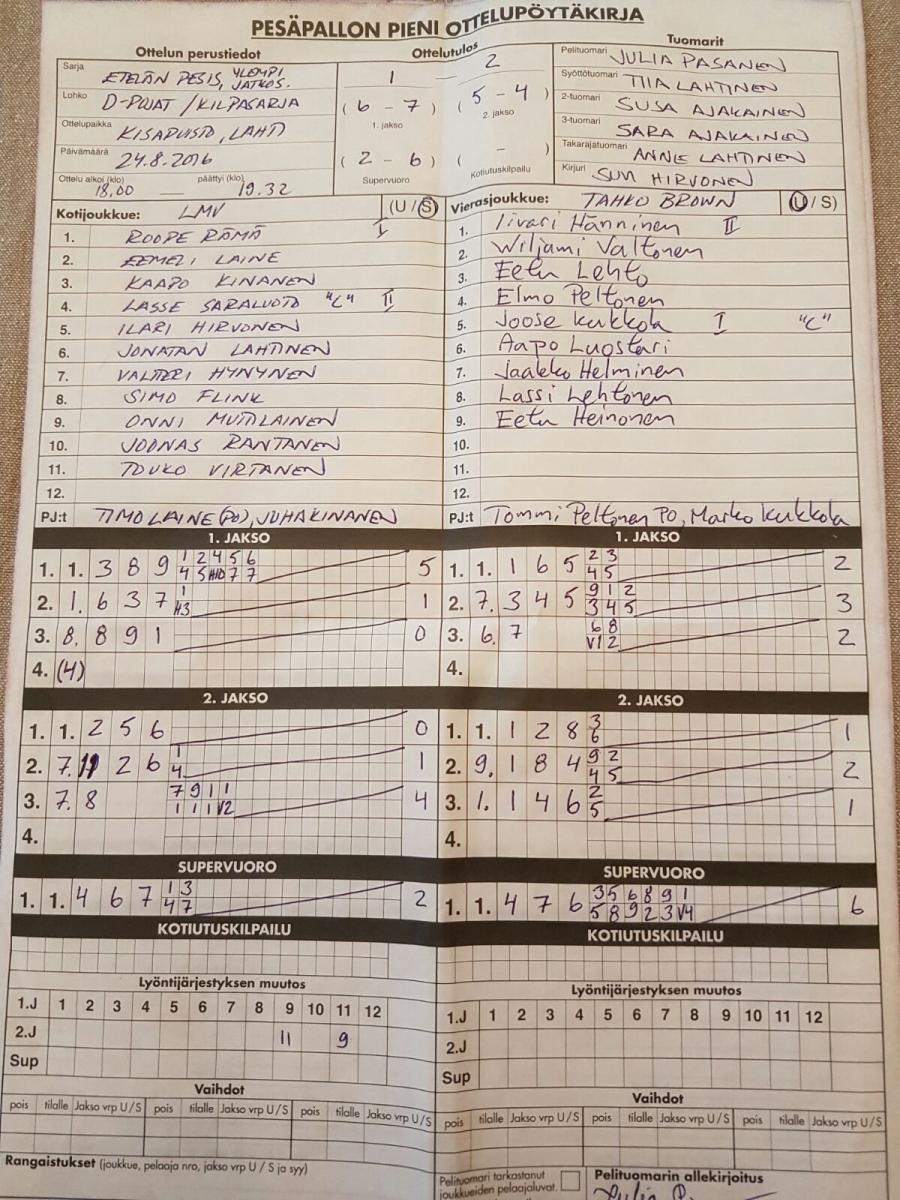 PESÄPALLON PIENI OTTELUPÖYTÄKIRJA
Ottelun perustiedot
Sarja ETELÄN PESIS, YLEMPI JATKOS.
Lohko D-POJAT / KILPASARJA
Ottelupaikka KISAPUISTO, LAHTI
Päivämäärä 24.8.2016
Ottelu alkoi (klo) päättyi (klo)
18.00 — 19.32
Ottelutulos
1 — 2
( 6 - 7 ) ( 5 - 4 )
1. jakso 2. jakso
( 2 - 6 ) ( - )
Supervuoro Kotiutuskilpailu
Tuomarit
Pelituomari JULIA PASANEN
Syöttötuomari TIIA LAHTINEN
2-tuomari SUSA AJAKAINEN
3-tuomari SARA AJAKAINEN
Takarajatuomari ANNE LAHTINEN
Kirjuri SUVI HIRVONEN
Kotijoukkue: LMV (U / S)
1. ROOPE RÄMÄ I
2. EEMELI LAINE
3. KAAPO KINANEN
4. LASSE SARALUOTO "C" II
5. ILARI HIRVONEN
6. JONATAN LAHTINEN
7. VALTTERI HYNYNEN
8. SIMO FLINK
9. ONNI MUTILAINEN
10. JOONAS RANTANEN
11. TOUKO VIRTANEN
12.
PJ:t TIMO LAINE (PO), JUHA KINANEN
Vierasjoukkue: TAHKO BROWN (U / S)
1. Iivari Hänninen II
2. Wiljami Valtonen
3. Eetu Lehto
4. Elmo Peltonen
5. Joose Kukkola I "C"
6. Aapo Luostari
7. Jaakko Helminen
8. Lassi Lehtonen
9. Eetu Heinonen
10.
11.
12.
PJ:t Tommi Peltonen PO, Marko Kukkola
1. JAKSO
1. 1. 3 8 9 1 2 4 5 6 5
4 5 7 7
2. 1. 6 3 7 1 1
H3
3. 8. 8 9 1 0
4. (4)
2. JAKSO
1. 1. 2 5 6 0
2. 7. 11 2 6 1 1
4
3. 7. 8 7 9 1 1 4
1 1 1 V2
4.
SUPERVUORO
1. 1. 4 6 7 1 3 2
4 7
KOTIUTUSKILPAILU
Lyöntijärjestyksen muutos
1.J 1 2 3 4 5 6 7 8 9 10 11 12
2.J 11 9
Sup
Vaihdot
pois tilalle Jakso vrp U / S pois tilalle Jakso vrp U / S pois tilalle Jakso vrp U / S
Rangaistukset (joukkue, pelaaja nro, jakso vrp U / S ja syy)
1. JAKSO
1. 1. 1 6 5 2 3 2
4 5
2. 7. 3 4 5 9 1 2 3
3 4 5
3. 6. 7 6 8 2
V1 2
4.
2. JAKSO
1. 1. 1 2 8 3 1
6
2. 9. 1 8 4 9 2 2
4 5
3. 1. 1 4 6 2 1
5
4.
SUPERVUORO
1. 1. 4 7 6 3 5 6 8 9 1 6
5 8 9 2 3 V4
KOTIUTUSKILPAILU
Lyöntijärjestyksen muutos
1.J 1 2 3 4 5 6 7 8 9 10 11 12
2.J
Sup
Vaihdot
pois tilalle Jakso vrp U / S pois tilalle Jakso vrp U / S pois tilalle Jakso vrp U / S
Pelituomari tarkastanut
joukkueiden pelaajaluvat.
Pelituomarin allekirjoitus